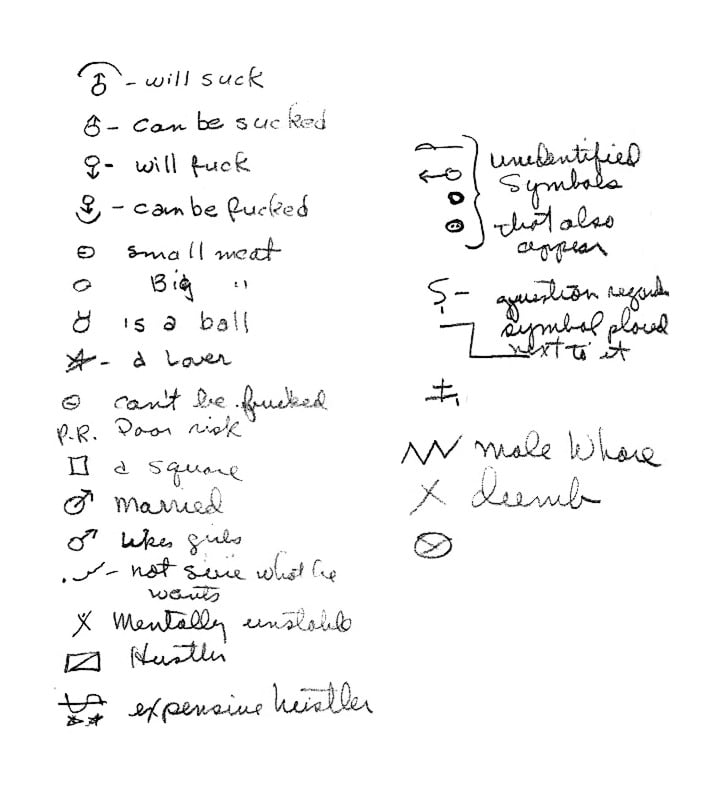 - will suck
- can be sucked
- will fuck
- can be fucked
small meat
Big "
is a ball
- a Lover
can't be fucked
P.R. Poor risk
a square
married
likes girls
- not sure what he
wants
X Mentally unstable
Hustler
expensive hustler
unidentified
Symbols
that also
appear
- question regards
symbol placed
next to it
male Whore
X dumb